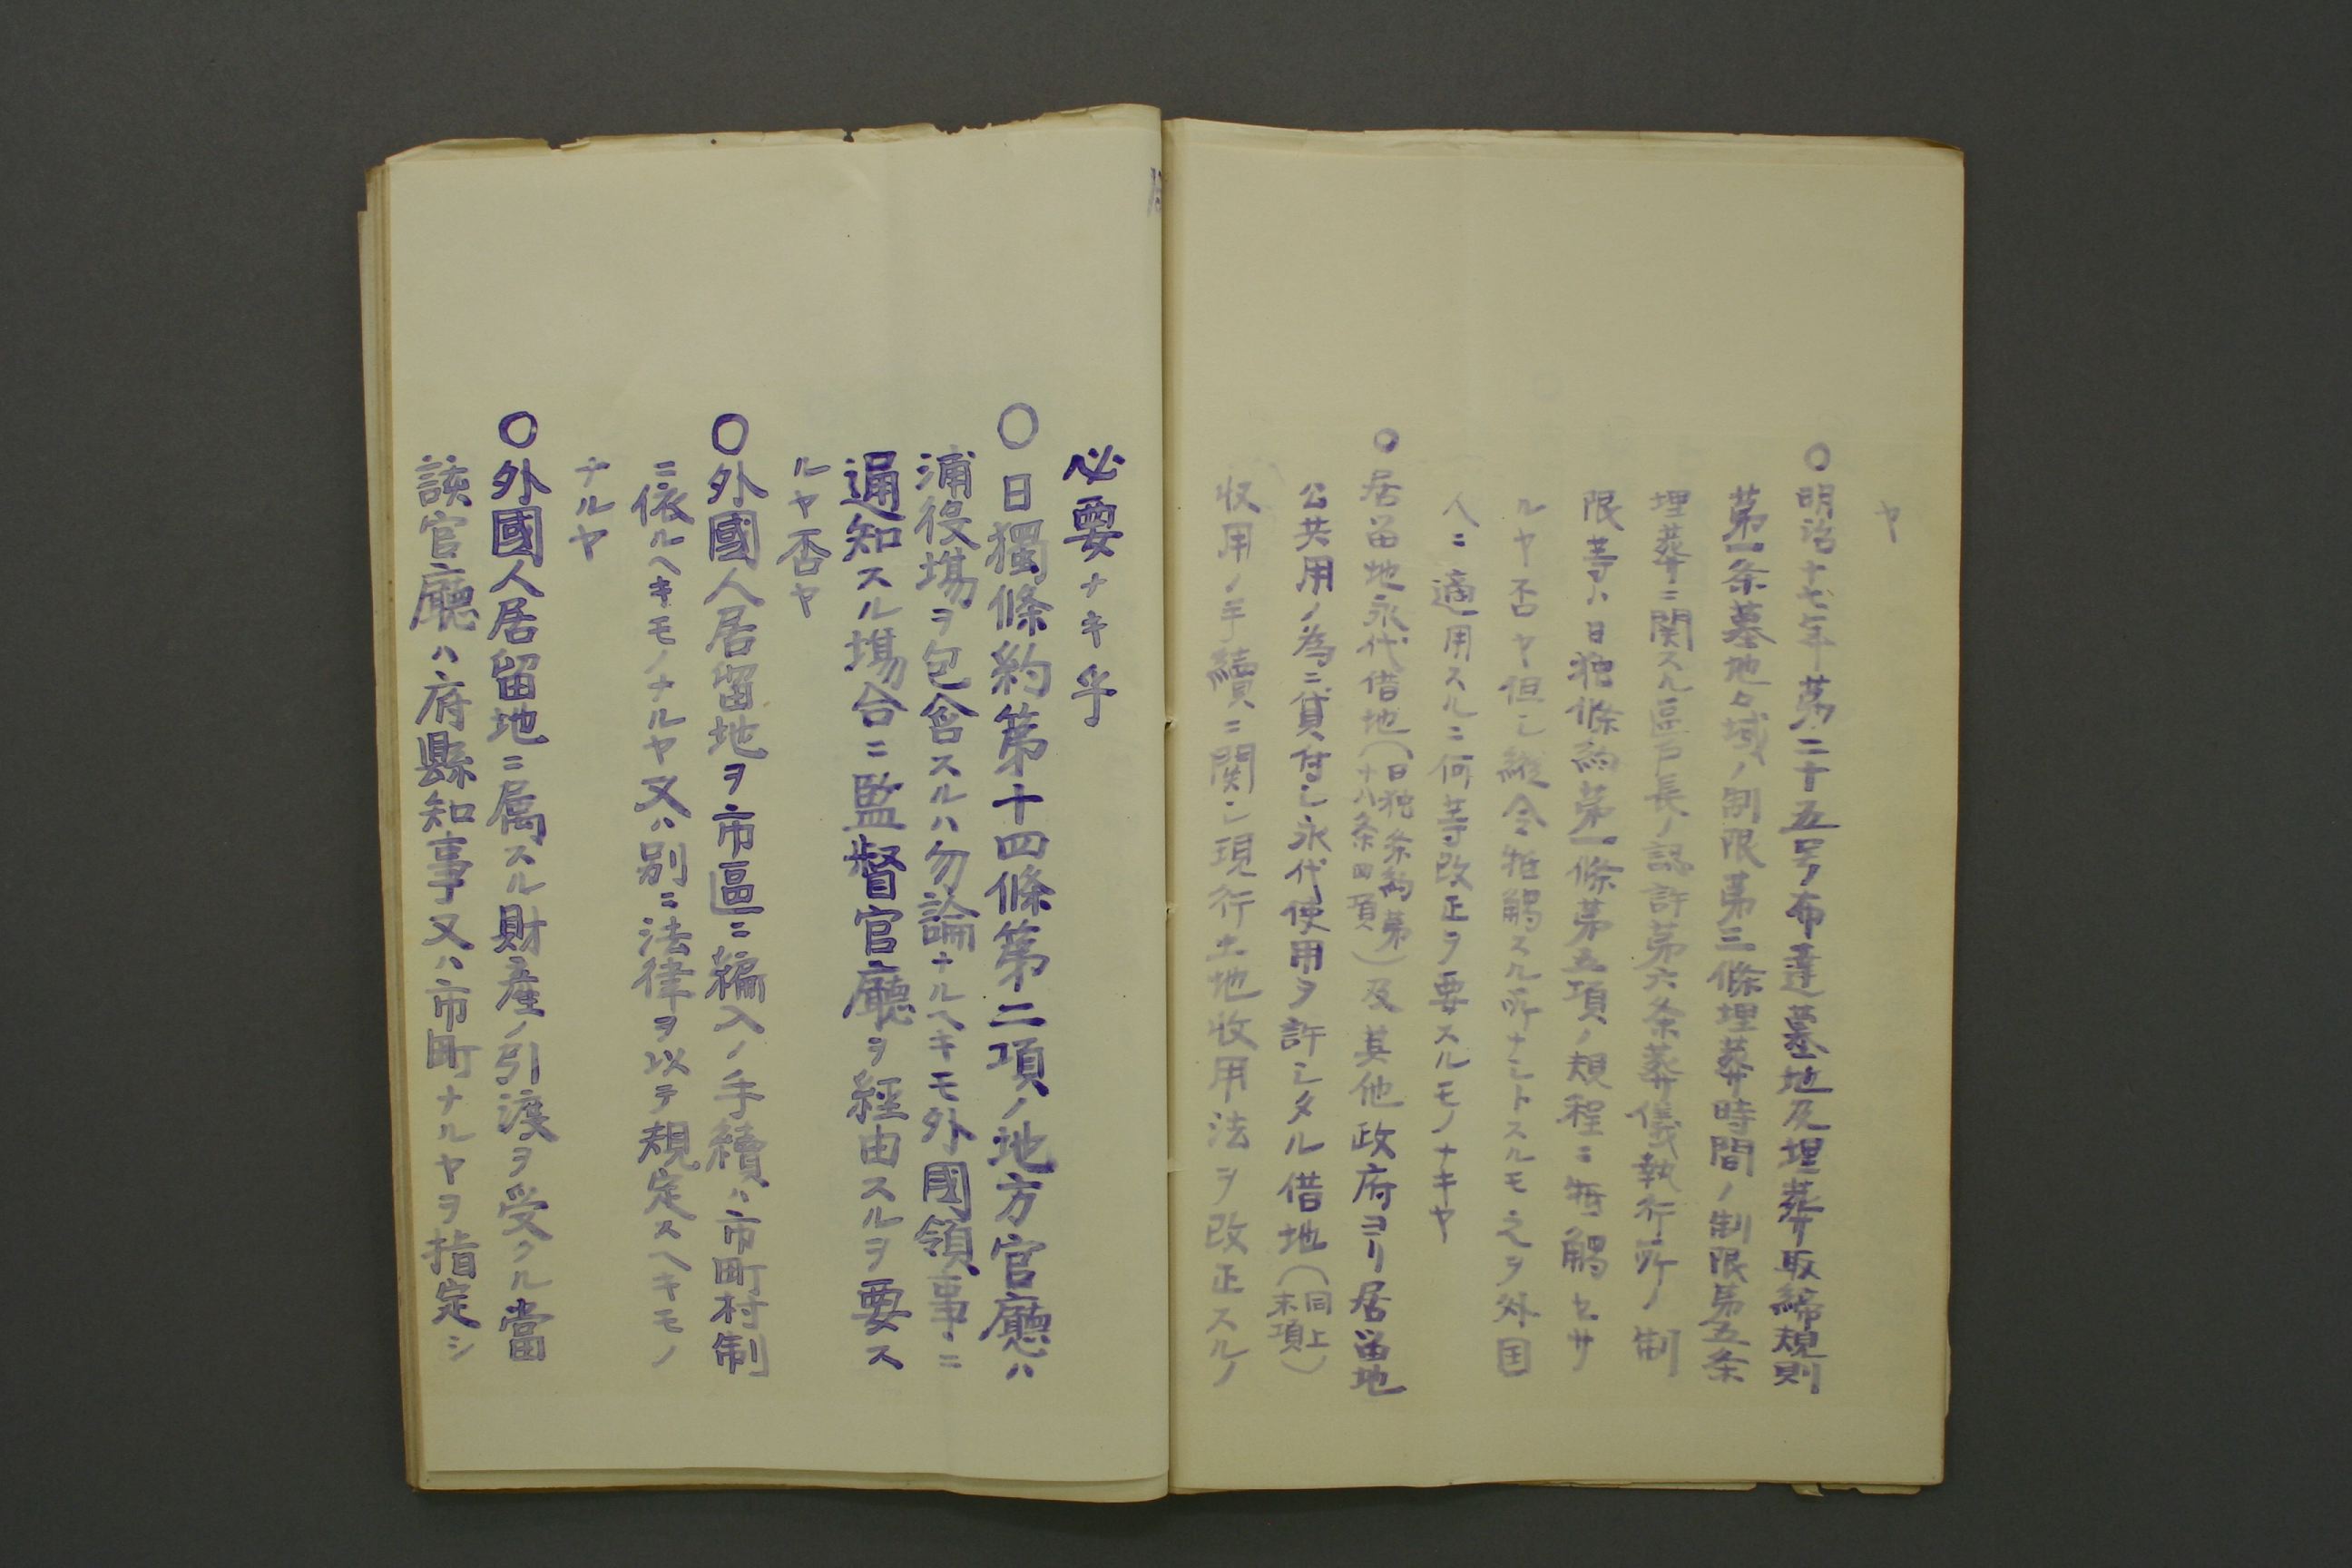 ヤ
〇明治十七年第二十五号布達墓地及埋葬取締規則
第一条墓地々域ノ制限第三條埋葬時間ノ制限第五条
埋葬ニ関スル區戸長ノ認許第六条葬儀執行所ノ制
限等ハ日独條約第一條第五項ノ規程ニ牴觸セサ
ルヤ否ヤ但シ縦令牴觸スル所ナシトスルモ之ヲ外国
人ニ適用スルニ何等改正ヲ要スルモノナキヤ
〇居留地永代借地(日独条約第十八条四項)及其他政府ヨリ居留地
公共用ノ為ニ貸付シ永代使用ヲ許シタル借地(同上末項)
収用ノ手續ニ関シ現行土地收用法ヲ改正スルノ
必要ナキ乎
〇日獨條約第十四條第二項ノ地方官廳ハ
浦役塲ヲ包含スルハ勿論ナルヘキモ外國領事ニ
通知スル塲合ニ監督官廳ヲ経由スルヲ要ス
ルヤ否ヤ
〇外國人居留地ヲ市區ニ編入ノ手續ハ市町村制
ニ依ルヘキモノナルヤ又ハ別ニ法律ヲ以テ規定スヘキモノ
ナルヤ
〇外國人居留地ニ属スル財産ノ引渡ヲ受クル當
該官廳ハ府縣知事又ハ市町ナルヤヲ指定シ